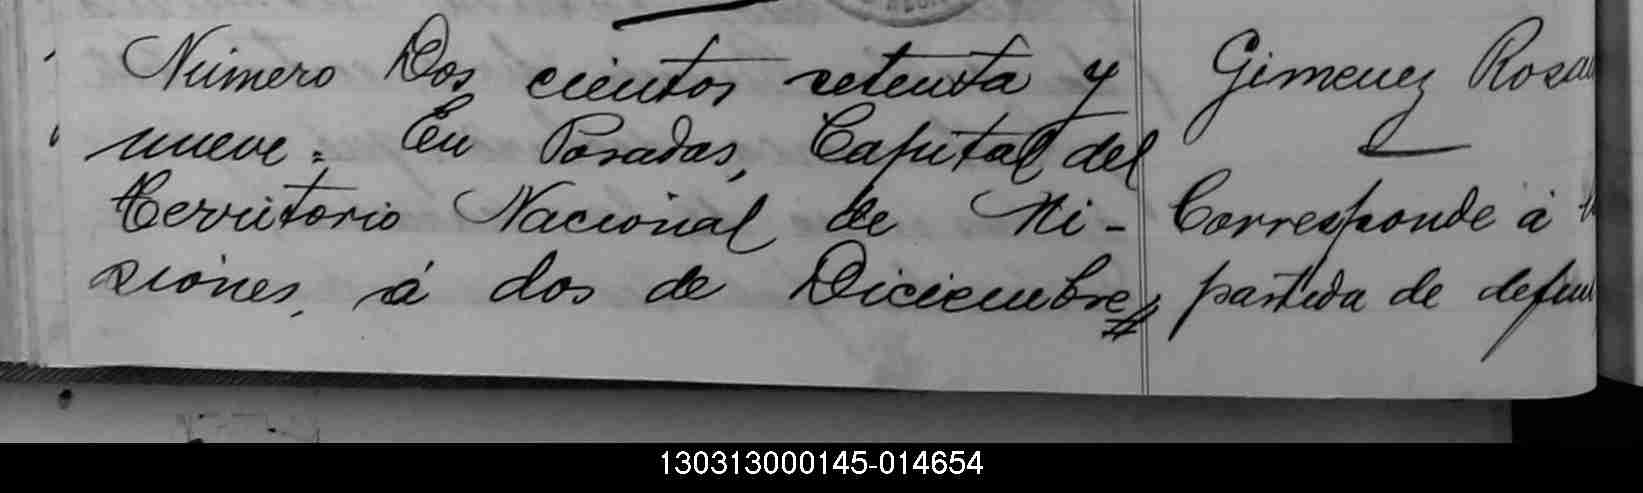 Número Dos cientos setenta y
nueve. En Posadas, Capital del
Territorio Nacional de Mi-
siones, á dos de Diciembre
Gimenez Rosa
Corresponde á
partida de defun
130313000145-014654